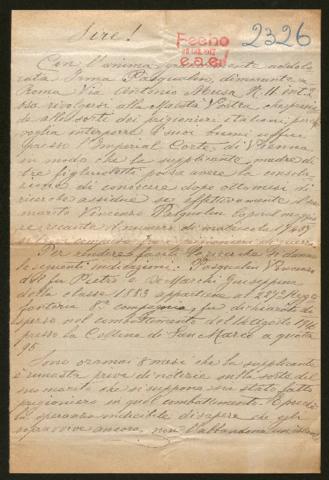 Sire!
2326
Con l'animo
rata Irma Pasqualin, dimorante a
Roma Via Antonio Musa N. 11 int. 2
osa rivolgersi alla Maestà Vostra, che
alle sorti dei prigionieri italiani, perchè
voglia interporre i suoi buoni uffici
presso l'Imperial Corte di Vienna
in modo che la supplicante, madre di
tre possa avere la conso
lazione di conoscere dopo otto mesi di
ricerche assidue se effettivamente il suo
marito Vincenzo Pasqualin Caporal maggio
re numero di matricola
prigionieri di guerra.
Per rendere facile la ricerca si danno
le seguenti indicazioni: Pasqualin Vincenzo
del fu Pietro e De Marchi Giuseppina
della classe 1883 appartiene al Regg
fanteria 8a compagnia, fu dichiarato di
sperso nel combattimento del 14 Agosto 916
presso la Collina di San Marco a quota
95.
Sono oramai 8 mesi che la supplicante
è rimasta priva di notizie sulla sorte di
suo marito che si suppone sia stato fatto
prigioniero in quel combattimento. E perciò
la speranza indicibile di sapere che egli
sopravvive ancora, non l'abbandona un